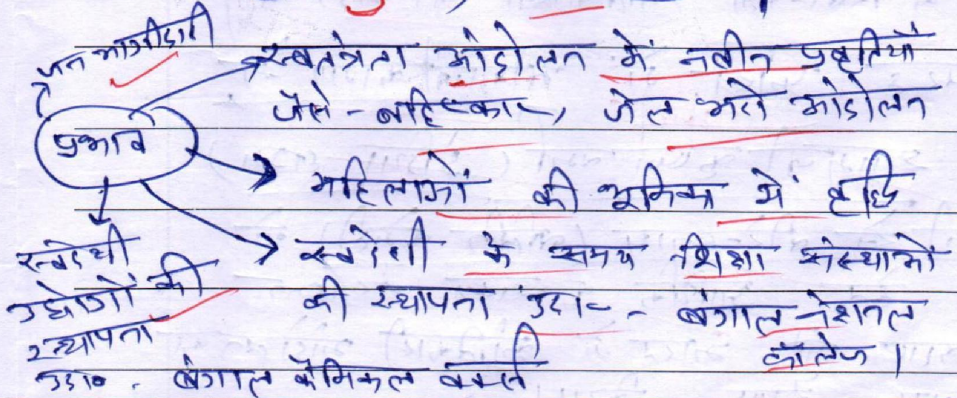 जन भागीदारी
स्वतंत्रता आंदोलन में नवीन प्रवृतियाँ
जैसे - बहिष्कार, जेल भरो आंदोलन
प्रभाव
महिलाओं की भूमिका में वृद्धि
स्वदेशी के समय शिक्षा संस्थाओं
की स्थापना उदा- - बंगाल नेशनल
कॉलेज।
स्वदेशी
उद्योगों की
स्थापना
उदा० - बंगाल केमिकल वर्क्स